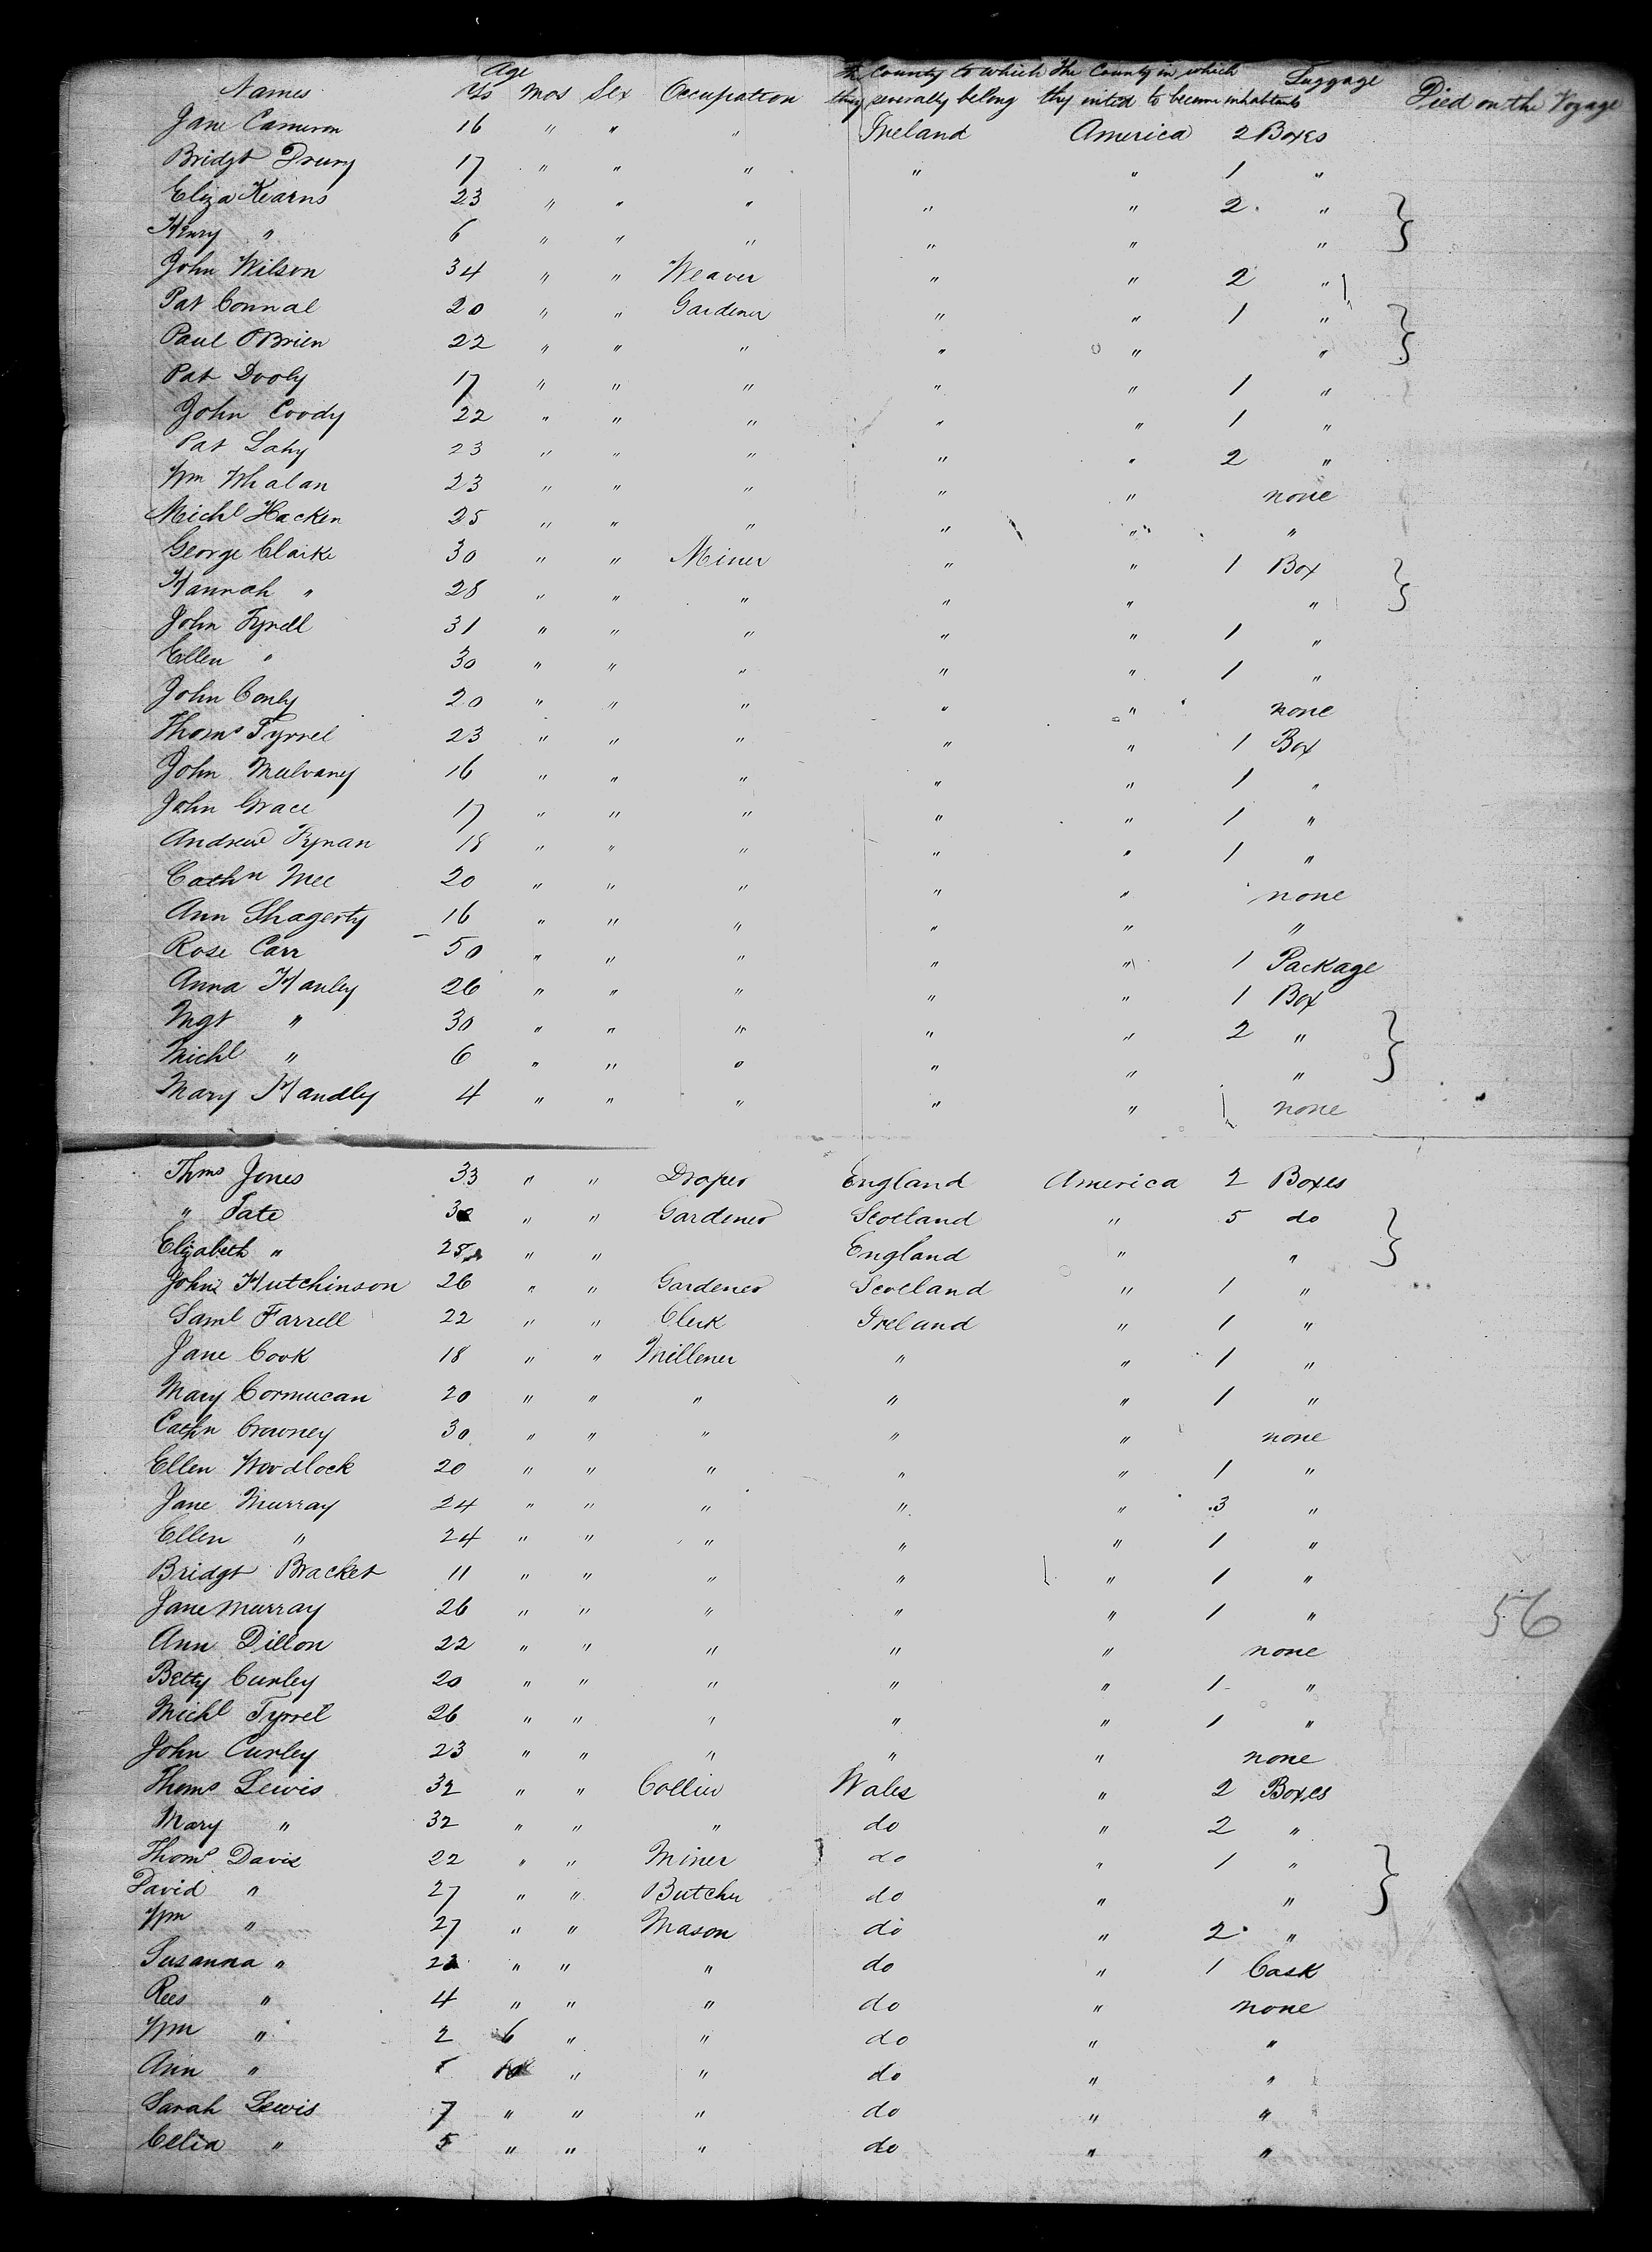 Names Age Yrs Mos Sex Occupation The County to which they severally belong The County in which they inted to becum inhabitants Luggage Died on the Voyage
Jane Cameron 16 " " " Ireland America 2 Boxes
Bridgt Drury 17 " " " " " 1 "
Eliza Kearns 23 " " " " " 2 "
Henry " 6 " " " " " "
John Wilson 34 " " Weaver " " 2 "
Pat Connal 20 " " Gardener " " 1 "
Paul OBrien 22 " " " " " "
Pat Dooly 17 " " " " " 1 "
John Coody 22 " " " " " 1 "
Pat Lahy 23 " " " " " 2 "
Wm Whalan 23 " " " " " none
Michl Hacken 25 " " " " " "
George Clarke 30 " " Miner " " 1 Box
Hannah " 28 " " " " " "
John Tyrell 31 " " " " " 1 "
Ellen " 30 " " " " " 1 "
John Conly 20 " " " " " none
Thoms Tyrrel 23 " " " " " 1 Box
John Mulvany 16 " " " " " 1 "
John Grace 17 " " " " " 1 "
Andrew Tynan 18 " " " " " 1 "
Cathn Mee 20 " " " " " none
Ann Shagerty 16 " " " " " "
Rose Carr 50 " " " " " 1 Package
Anna Hanley 26 " " " " " 1 Box
Mgt " 30 " " " " " 2 "
Michl " 6 " " " " " "
Mary Handley 4 " " " " " none
Thms Jones 33 " " Draper England America 2 Boxes
" Tate " " Gardener Scotland " 5 do
Elizabeth " 25 " " England " "
John Hutchinson 26 " " Gardener Scotland " 1 "
Saml Farrell 22 " " Clerk Ireland " 1 "
Jane Cook 18 " " Millener " " 1 "
Mary Cormucan 20 " " " " " 1 "
Cathn Crowney 30 " " " " " none
Ellen Woodlock 20 " " " " " 1 "
Jane Murray 24 " " " " " 3 "
Ellen " 24 " " " " " 1 "
Bridgt Bracket 11 " " " " " 1 "
Jane Murray 26 " " " " " 1 "
56
Ann Dillon 22 " " " " " none
Betty Curley 20 " " " " " 1 "
Michl Tyrrel 26 " " " " " 1 "
John Curley 23 " " " " " none
Thoms Lewis 32 " " Collier Wales " 2 Boxes
Mary " 32 " " " do " 2 "
Thoms Davis 22 " " Miner do " 1 "
David " 27 " " Butcher do " "
Wm " 27 " " Mason do " 2 "
Susanna " " " " do " 1 Cask
Rees " 4 " " " do " none
Wm " 2 6 " " do " "
Ann " " " do " "
Sarah Lewis 7 " " " do " "
Celia " 5 " " " do " "